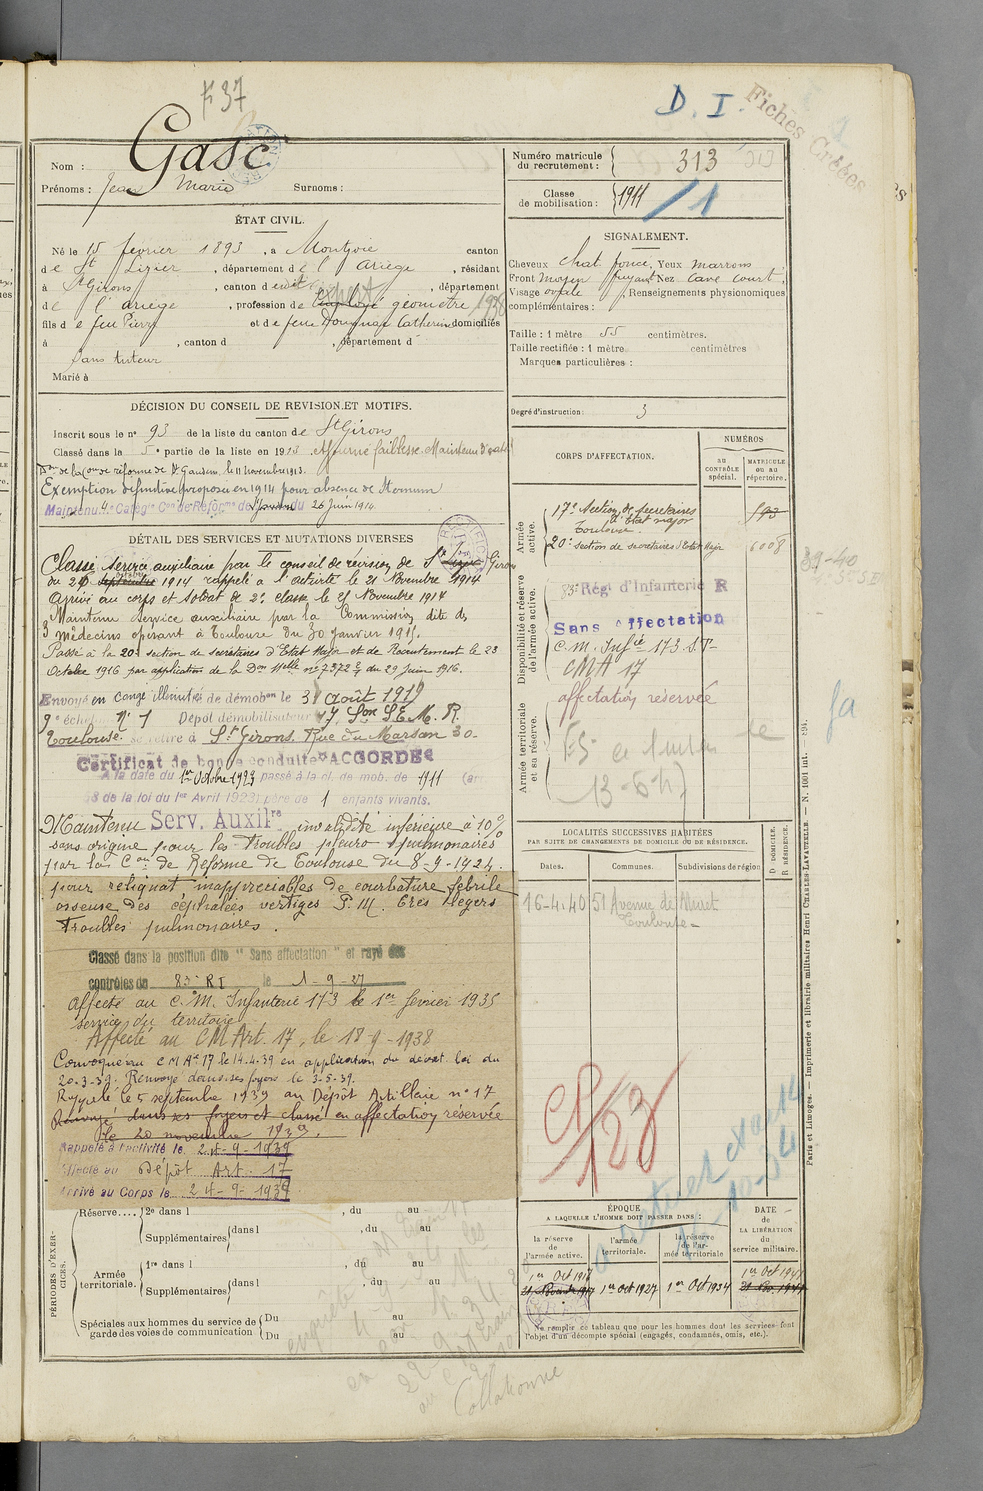 F 37
D. I.
Fiches Créées
Nom : Gasc
Prénoms : Jean Marie Surnoms :
Numéro matricule du recrutement : 313
Classe de mobilisation : 1911 / 1
ÉTAT CIVIL.
Né le 15 février 1893, à Montjoie canton
de St Lizier, département de l'Ariège, résidant
à St Girons, canton du dit, département
de l'ariège, profession de Employé géomètre 1938
fils de feu Pierre et de feue Dougnac Catherine domiciliés
à , canton d , département d
Sans tuteur
Marié à
SIGNALEMENT.
Cheveux chat. foncé, Yeux marrons
Front moyen fuyant Nez cave court,
Visage ovale, Renseignements physionomiques
complémentaires :
Taille : 1 mètre 55 centimètres.
Taille rectifiée : 1 mètre centimètres
Marques particulières :
Degré d'instruction : 3
DÉCISION DU CONSEIL DE REVISION ET MOTIFS.
Inscrit sous le n° 93 de la liste du canton de St Girons
Classé dans la 5e partie de la liste en 1913. Ajourné faiblesse. Maintenu
Don de la Con de réforme de St Gaudens, le 11 novembre 1913.
Exemption définitive proposée en 1914 pour absence de Sternum
Maintenu 4e Catégie Con de Réforme de du 26 Juin 1914
DÉTAIL DES SERVICES ET MUTATIONS DIVERSES
Classé Service auxiliaire par le conseil de révision de St Lizier Girons
du 20 septembre octobre 1914 rappelé à l'activité le 21 Novembre 1914
Arrivé au corps et soldat de 2e classe le 21 Novembre 1914
Maintenu service auxiliaire par la Commission dite des
3 médecins opérant à Toulouse du 30 janvier 1915.
Passé à la 20e section de secrétaires d'Etat Major et de Recrutement le 23
Octobre 1916 par application de la Don Melle n° 7372 du 29 Juin 1916.
Envoyé en congé illimité de démobon le 31 août 1919
9e échelon n° 1 Dépôt démobilisateur 17 Son S.E.M.R.
Toulouse se retire à St Girons Rue du Marsan 30
Certificat de bonne conduite "ACCORDÉ"
A la date du 1er Octobre 1923 passé à la cl. de mob. de 1911 (art
58 de la loi du 1er Avril 1923) père de 1 enfants vivants.
Maintenu Serv. Auxilre invalidité inférieure à 10%
sans origine pour les troubles pleuro-pulmonaires
par la Con de Réforme de Toulouse du 8-9-1924.
pour reliquat inappréciables de courbature fébrile
osseuse des céphalées vertiges P. M. très légers
troubles pulmonaires.
Classé dans la position dite "Sans affectation" et rayé des
contrôles du 83e RI le 1-9-27
Affecté au C.M. Infanterie 173 le 1er février 1935
service du territoire
Affecté au CM Art. 17, le 18-9-1938
Convoqué au C M At 17 le 14.4.39 en application du décret loi du
20.3.39. Renvoyé dans ses foyers le 3-5-39.
Rappelé le 5 septembre 1939 au Dépôt Artillerie n° 17
Renvoyé dans ses foyers et classé en affectation réservée
le 20 novembre 1939.
Rappelé à l'activité le 24-9-1939
Affecté au Dépôt Art. 17
Arrivé au Corps le 24-9-1939
CORPS D'AFFECTATION.
NUMÉROS
AU CONTRÔLE spécial.
MATRICULE ou au répertoire.
Armée active.
17e Section de secrétaires d'Etat major Toulouse 593
20e section de secrétaires d'Etat Major 6008
Disponibilité et réserve de l'armée active.
83e Régt d'Infanterie R
Sans affectation
C.M. Infie 173 S.T.
CMA 17
affectation réservée
Armée territoriale et sa réserve.
39-40
fa
LOCALITÉS SUCCESSIVES HABITÉES
PAR SUITE DE CHANGEMENTS DE DOMICILE OU DE RÉSIDENCE.
Dates. Communes. Subdivisions de région
D. DOMICILE. R. RÉSIDENCE.
16-4.40 51 Avenue de Muret
Toulouse
Paris et Limoges. — Imprimerie et librairie militaires Henri CHARLES-LAVAUZELLE.
PÉRIODES D'EXERCICES.
Réserve.... 2e dans l , du au
Supplémentaires dans l , du au
Armée territoriale. 1re dans l , du au
Supplémentaires dans l , du au
Spéciales aux hommes du service de garde des voies de communication Du au
Du au
ÉPOQUE
A LAQUELLE L'HOMME DOIT PASSER DANS :
la réserve de l'armée active.
l'armée territoriale.
la réserve de l'armée territoriale
DATE de LA LIBÉRATION du service militaire.
1er Oct 1917
1er Oct 1927
1er Oct 1934
Ne remplir ce tableau que pour les hommes dont les services font
l'objet d'un décompte spécial (engagés, condamnés, omis, etc.).
Collationné